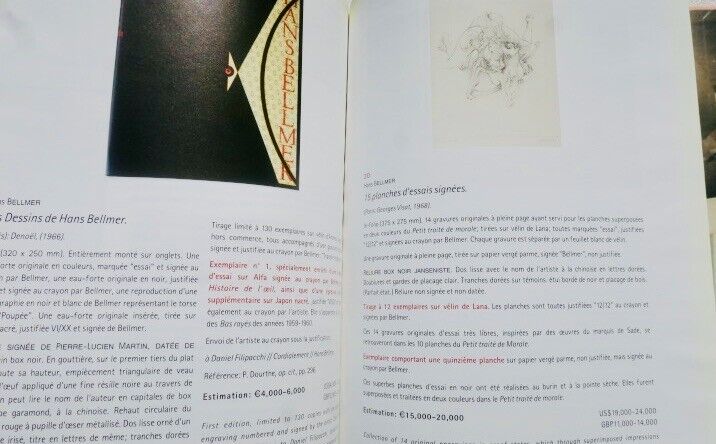 HANS BELLMER
BELLMER
Dessins de Hans Bellmer.
Denoël, (1966).
(320 x 250 mm). Entièrement monté sur onglets. Une
forte originale en couleurs, marquée "essai" et signée au
par Bellmer, une eau-forte originale en noir, justifiée
et signée au crayon par Bellmer, une reproduction d'une
en noir et blanc de Bellmer représentant le torse
"Poupée". Une eau-forte originale insérée, tirée sur
justifiée VI/XX et signée de Bellmer.
SIGNÉE DE PIERRE-LUCIEN MARTIN, DATÉE DE
box noir. En gouttière, sur le premier tiers du plat
sa hauteur, empiècement triangulaire de veau
d'œuf appliqué d'une fine résille noire au travers de
on peut lire le nom de l'auteur en capitales de box
garamond, à la chinoise. Rehaut circulaire du
rouge à pupille d'œser métallisé. Dos lisse orné d'un
irisé, titre en lettres de même, tranches dorées
Tirage limité à 130 exemplaires sur vélin
hors commerce, tous accompagnés d'un
signée et justifiée au crayon par Bellmer.
Exemplaire n° 1, spécialement enrichi
d'essai sur Alfa signée au crayon par
Histoire de l'œil, ainsi que d'une
supplémentaire sur Japon nacré, justifiée
également au crayon par l'artiste.
des Bas rayés des années 1959-1960.
Envoi de l'artiste au crayon sous la justification
à Daniel Filipacchi // Cordialement // Hans Bellmer.
Référence: P. Dourthe, op. cit., pp. 236
Estimation: €4,000-6,000
First edition, limited to 130 copies
engraving numbered and signed by the
to Daniel Filipacchi
20
HANS BELLMER
15 planches d'essais signées.
(Paris: Georges Visat, 1968).
In-folio (375 x 275 mm). 14 gravures originales à pleine page ayant servi pour les planches superposées
en deux couleurs du Petit traité de morale; tirées sur vélin de Lana, toutes marquées "essai", justifiées
"12/12" et signées au crayon par Bellmer. Chaque gravure est séparée par un feuillet blanc de vélin.
Une gravure originale à pleine page, tirée sur papier vergé parme, signée "Bellmer", non justifiée.
RELIURE BOX NOIR JANSENISTE. Dos lisse avec le nom de l'artiste à la chinoise en lettres dorées.
Doublures et gardes de placage clair. Tranches dorées sur témoins, étui bordé de noir et placage de bois.
(Parfait état.) Reliure non signée et non datée.
Tirage à 12 exemplaires sur vélin de Lana. Les planches sont toutes justifiées "12/12" au crayon et
signées par Bellmer.
Ces 14 gravures originales d'essai très libres, inspirées par des œuvres du marquis de Sade, se
retrouveront dans les 10 planches du Petit traité de Morale.
Exemplaire comportant une quinzième planche sur papier vergé parme, non justifiée, mais signée au
crayon par Bellmer.
Ces superbes planches d'essai en noir ont été réalisées au burin et à la pointe sèche. Elles furent
superposées et traitées en deux couleurs dans le Petit traité de Morale.
Estimation: €15,000-20,000
US$19,000-24,000
GBP11,000-14,000
Collection of 14 original